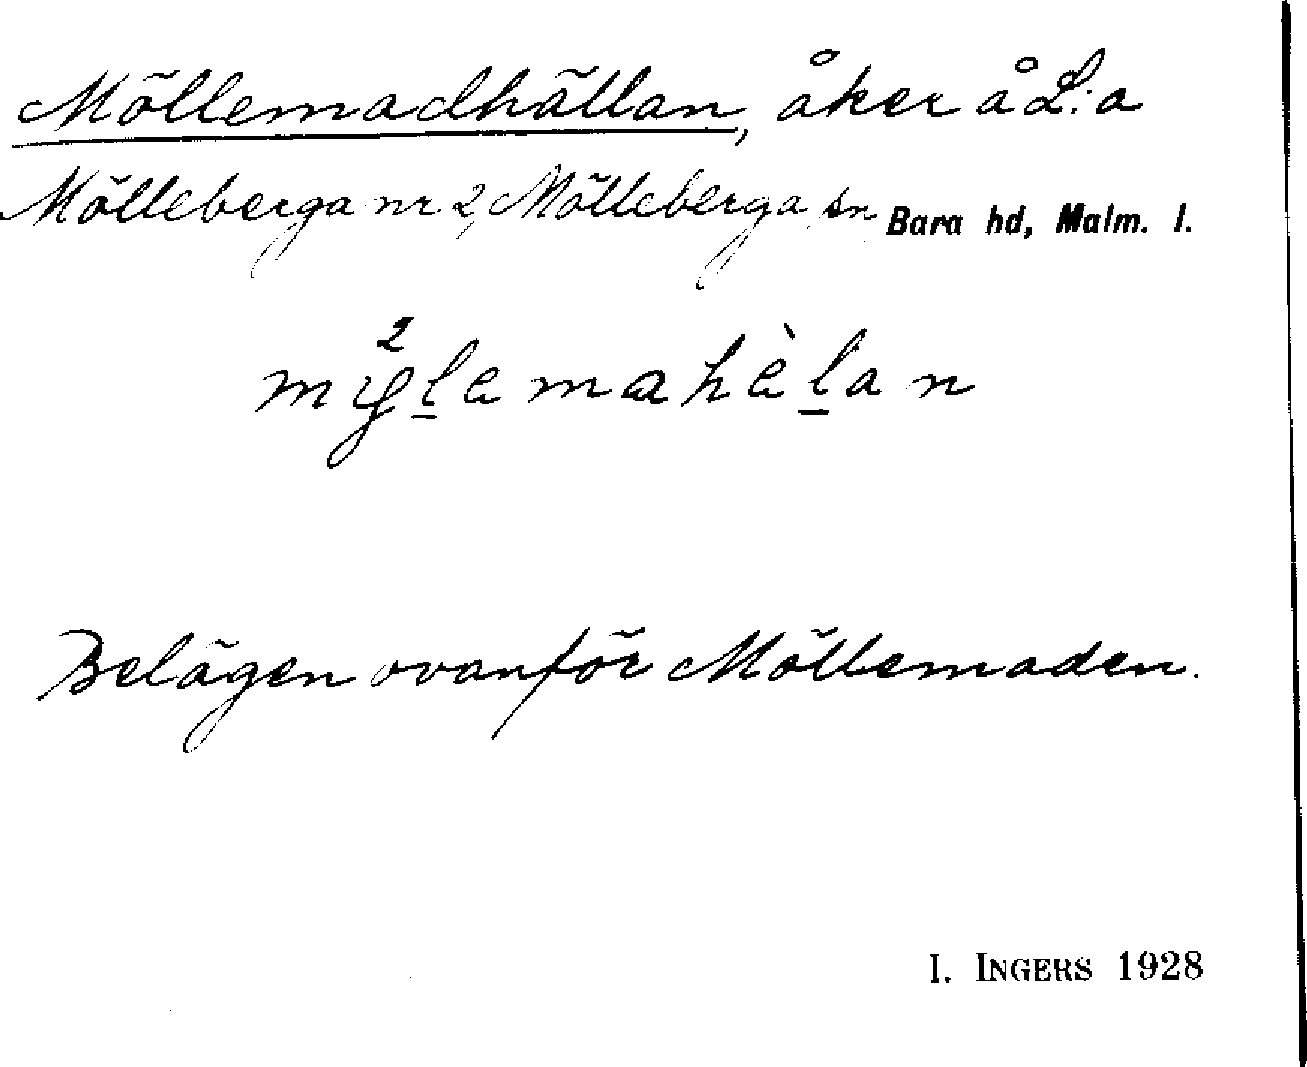 Möllemadhällan, åker å L:a
Mölleberga nr 2, Mölleberga sn Bara hd, Malm. l.
Belägen ovanför Möllemaden.
I. INGERS 1928